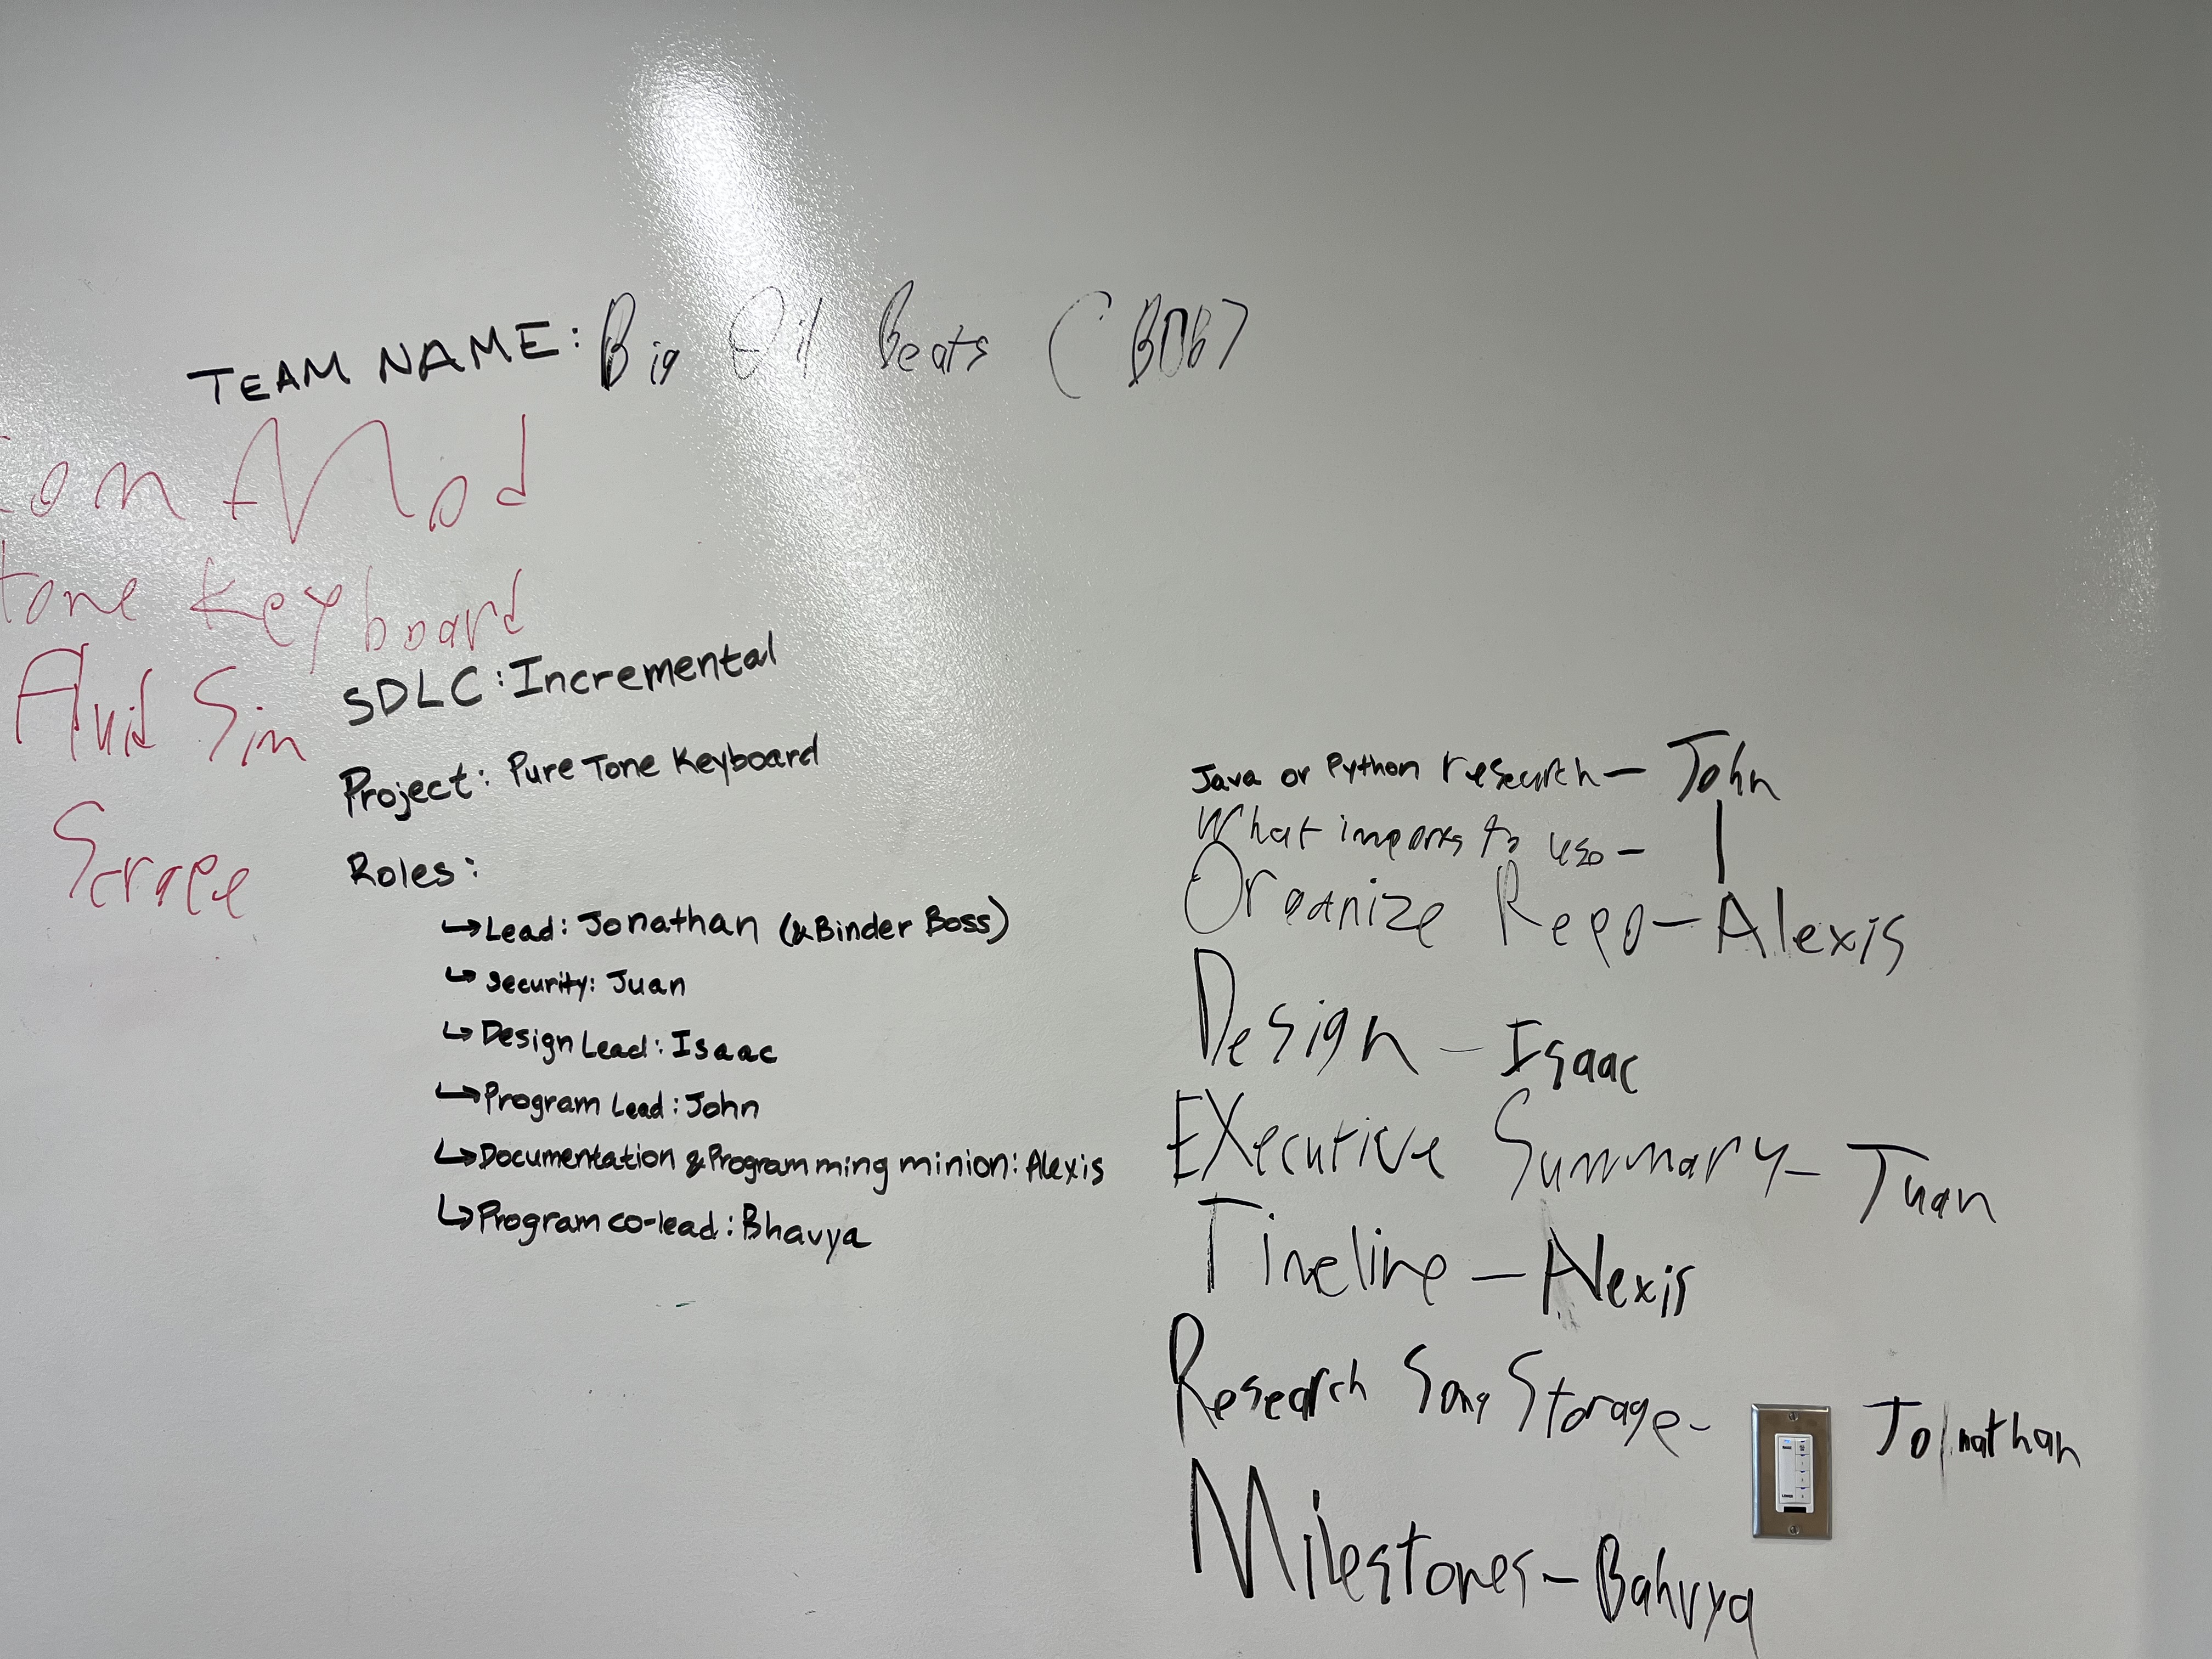 TEAM NAME: Big Oil Beats (BOB)
Mod
tone Keyboard
Fluid Sim
Scrape
SDLC: Incremental
Project: Pure Tone Keyboard
Roles:
↳ Lead: Jonathan (& Binder Boss)
↳ Security: Juan
↳ Design Lead: Isaac
↳ Program Lead: John
↳ Documentation & Programming minion: Alexis
↳ Program co-lead: Bhavya
Java or Python research - John
What imports to use - |
Organize Repo - Alexis
Design - Isaac
Executive Summary - Juan
Timeline - Alexis
Research Song Storage - Jonathan
Milestones - Bahvya